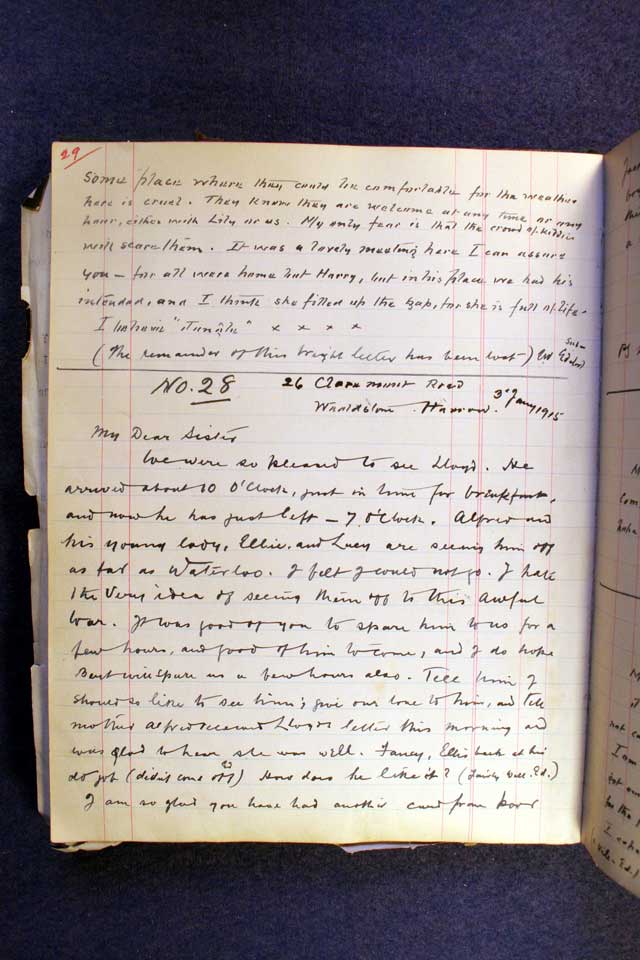 29
some place where they could be comfortable for the weather
here is cruel. They know they are welcome at any time or any
hour, either with Lily or us. My only fear is that the crowd of kiddies
will scare them. It was a lovely meeting here I can assure
you - for all were home but Harry, but in his place we had his
intended, and I think she filled up the gap, for she is full of life.
I x x x x
(The remainder of this bright letter has been lost -) Sub-Editor)
No. 28 26 Claremont Road
Wealdstone. Harrow. 3rd Jany 1915
My Dear Sister
We were so pleased to see Lloyd. He
arrived about 10 O'Clock, just in time for breakfast,
and now he has just left - 7 O'Clock. Alfred and
his young lady, Ellie, and Lucy are seeing him off
as far as Waterloo. I felt I could not go. I hate
the very idea of seeing them off to this awful
War. It was good of you to spare him to us for a
few hours, and good of him to come, and I do hope
Bert will spare us a few hours also. Tell him I
should so like to see him; give our love to him, and tell
mother Alfred received Lloyds letter this morning and
was glad to hear she was well. Fancy, Ellis back at his
old job (didn't come off) How does he like it? (Fairly well. Ed.)
I am so glad you have had another card from poor